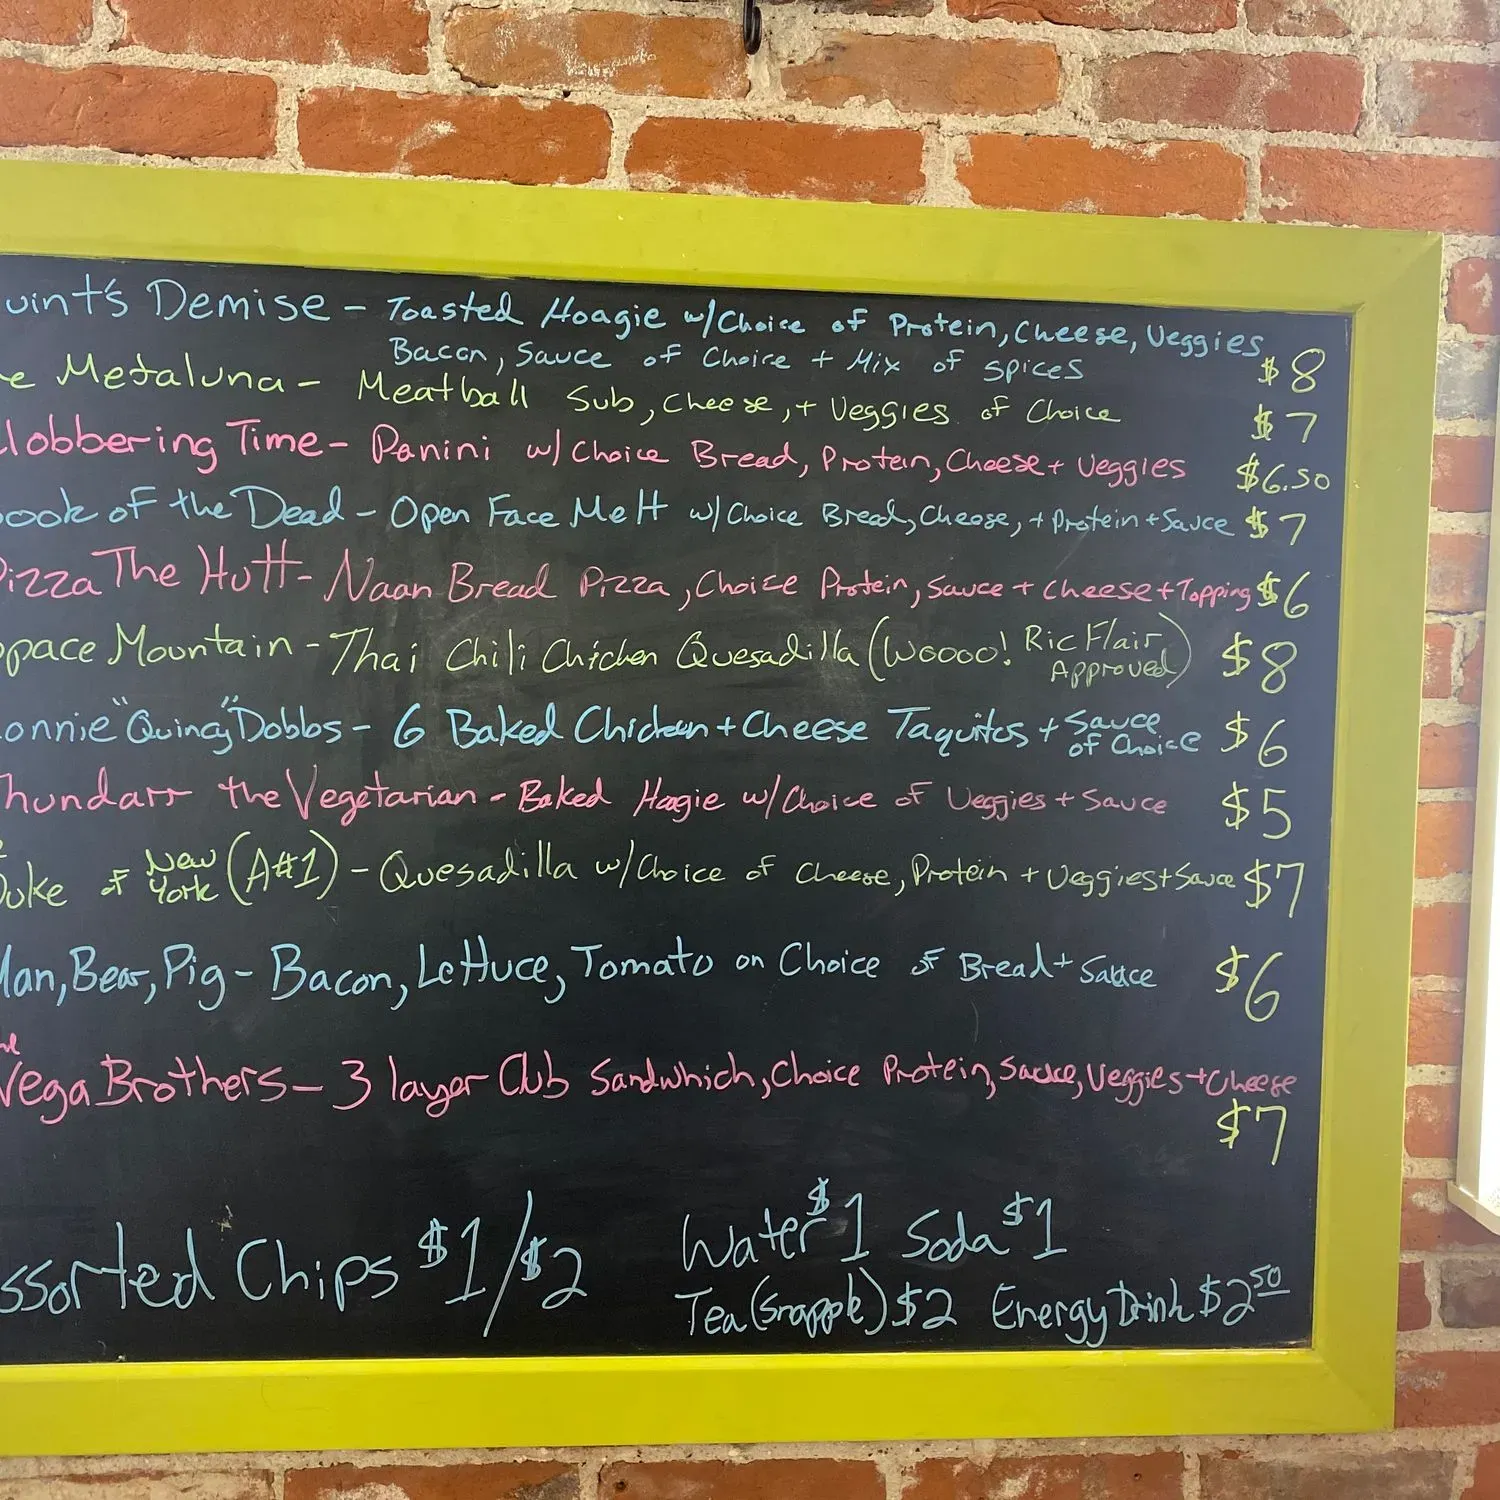 uint's Demise - Toasted Hoagie w/Choice of Protein, Cheese, Veggies
Bacon, Sauce of Choice + Mix of spices $8
e Metaluna - Meatball Sub, Cheese, + Veggies of Choice $7
lobbering Time - Panini w/ Choice Bread, Protein, Cheese + Veggies $6.50
ook of the Dead - Open Face Melt w/Choice Bread, Cheese, + Protein + Sauce $7
Pizza The Hutt - Naan Bread Pizza, Choice Protein, Sauce + Cheese + Topping $6
pace Mountain - Thai Chili Chicken Quesadilla (Woooo! Ric Flair Approved) $8
onnie "Quincy" Dobbs - 6 Baked Chicken + Cheese Taquitos + Sauce of Choice $6
hundarr the Vegetarian - Baked Hoagie w/Choice of Veggies + Sauce $5
Duke of New York (A#1) - Quesadilla w/Choice of Cheese, Protein + Veggies + Sauce $7
Man, Bear, Pig - Bacon, Lettuce, Tomato on Choice of Bread + Sauce $6
Vega Brothers - 3 layer Club Sandwhich, Choice Protein, Sauce, Veggies + Cheese
$7
ssorted Chips $1/$2
Water $1 Soda $1
Tea (Snapple) $2 Energy Drink $2.50